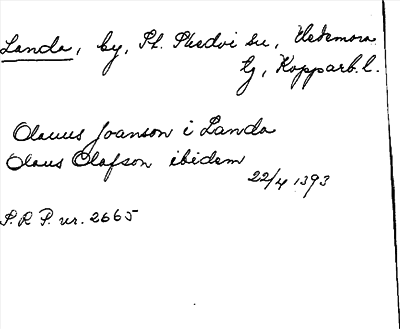 Landa, by, St. Skedvi sn, Hedemora
tg, Kopparb. l.
Olauus Joanson i Landa
Olaus Olafson ibidem
22/4 1393
S.R.P. nr. 2665